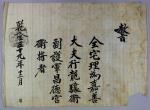 全宅理為嘉善
大夫行龍驤衛
副護軍昌德宮
衛將者
乾隆五十九年十二月